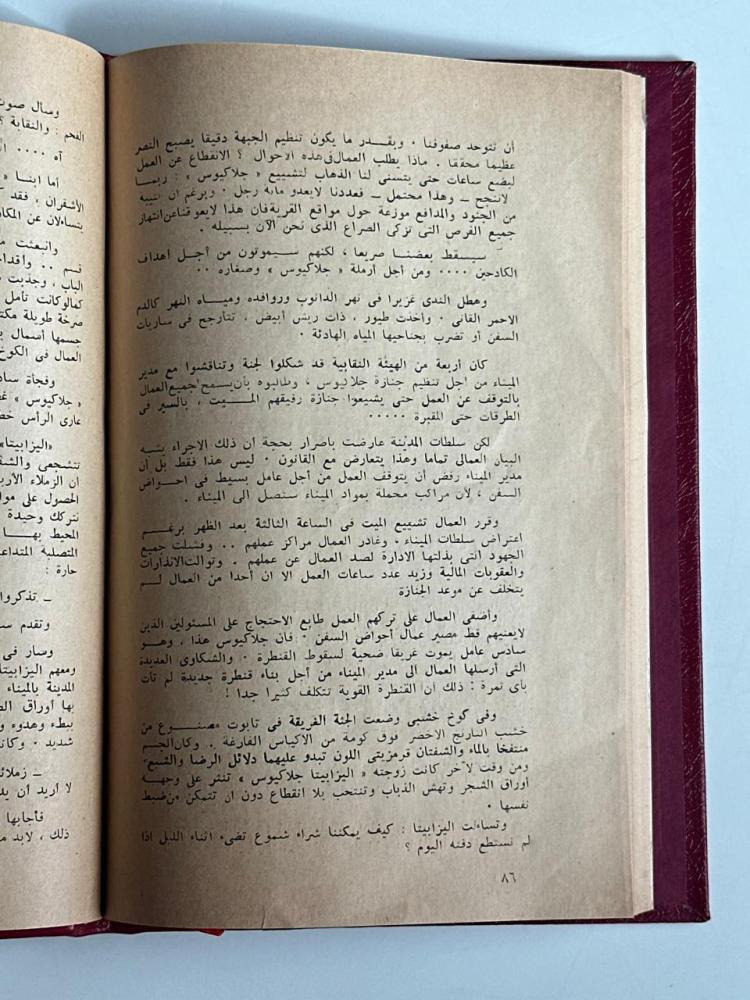 أن تتوحد صفوفنا ٠ وبقدر ما يكون تنظيم الجبهة دقيقا يصبح النصر
عظيما محققا ٠ ماذا يطلب العمال في هذه الاحوال ؟ الانقطاع عن العمل
لبضع ساعات حتى يتسنى لنا الذهاب لتشييع « جلاكيوس » : ربما
لاننجح ــ وهذا محتمل ــ فعددنا لايعدو مائة رجل ٠ وبرغم ان
من الجنود والمدافع موزعة حول مواقع القرية فان هذا لايعوقنا عن انتهاز
جميع الفرص التى تزكى الصراع الذى نحن الآن بسبيله ٠
سيسقط بعضنا صريعا ، لكنهم سيموتون من أجل اهداف
الكادحين ٠٠٠٠ ومن أجل أرملة « جلاكيوس » وصغاره ٠٠
وهطل الندى غزيرا فى نهر الدانوب وروافده ومياه النهر كالدم
الاحمر القانى ٠ وأخذت طيور ، ذات ريش أبيض ، تتأرجح فى ساريات
السفن أو تضرب بجناحيها المياه الهادئة ٠
كان أربعة من الهيئة النقابية قد شكلوا لجنة وتناقشوا مع مدير
الميناء من اجل تنظيم جنازة جلاكيوس ، وطالبوه بأن يسمح لجميع العمال
بالتوقف عن العمل حتى يشيعوا جنازة رفيقهم الميت ، بالسير فى
الطرقات حتى المقبرة ٠٠٠٠٠
لكن سلطات المدينة عارضت باصرار بحجة ان ذلك الاجراء يشبه
البيان العمالى تماما وهذا يتعارض مع القانون ٠ ليس هذا فقط بل أن
مدير الميناء رفض أن يتوقف العمل من أجل عامل بسيط فى احواض
السفن ، لأن مراكب محملة بمواد الميناء ستصل الى الميناء ٠
وقرر العمال تشييع الميت فى الساعة الثالثة بعد الظهر برغم
اعتراض سلطات الميناء ٠ وغادر العمال مراكز عملهم ٠٠ وفشلت جميع
الجهود التى بذلتها الادارة لصد العمال عن عملهم ٠ وتوالت الانذارات
والعقوبات المالية وزيد عدد ساعات العمل الا ان أحدا من العمال لم
يتخلف عن موعد الجنازة
وأضفى العمال على تركهم العمل طابع الاحتجاج على المسئولين الذين
لايعنيهم قط مصير عمال أحواض السفن ٠ فان جلاكيوس هذا ، وهو
سادس عامل يموت غريقا ضحية لسقوط القنطرة ٠ والشكاوى العديدة
التى أرسلها العمال الى مدير الميناء من أجل بناء قنطرة جديدة لم تأت
بأى ثمرة : ذلك ان القنطرة القوية تتكلف كثيرا جدا !
وفى كوخ خشبى وضعت الجثة الغريقة فى تابوت مصنوع من
خشب النارنج الاخضر فوق كومة من الاكياس الفارغة ٠ وكان الجسم
منتفخا بالماء والشفتان قرمزيتى اللون تبدو عليهما دلائل الرضا والشبع
ومن وقت لآخر كانت زوجته « اليزابيتا جلاكيوس » تنثر على وجهه
أوراق الشجر وتهش الذباب وتنتحب بلا انقطاع دون ان تتمكن من ضبط
نفسها ٠
وتساءلت اليزابيتا : كيف يمكننا شراء شموع تضىء اثناء الليل اذا
لم نستطع دفنه اليوم ؟
٨٦
وسال صوت
الفحم : والنقابة ؟
آه ٠٠٠٠
أما ابنا «
الأشقران ، فقد
يتساءلان عن المكان
وانبعثت
قسم ٠٠ وأقدا
الباب ، وجذبت
كما لو كانت تأمل
صرخة طويلة
جسمها أسمال
العمال فى الكوخ
وفجأة
« جلاكيوس »
عارى الرأس
«اليزابيتا»
ان الزملاء
الحصول على
نتركك وحيدة
المحيط بها
المتصلبة
حارة :
ــ تذكروا
وتقدم
وسار فى
ومعهم اليزابيتا
المدينة بالميناء
بها أوراق
ببطء وهدوء
شديد ٠
ــ زملائ
لا أريد أن
فأجابها
ذلك ، لابد